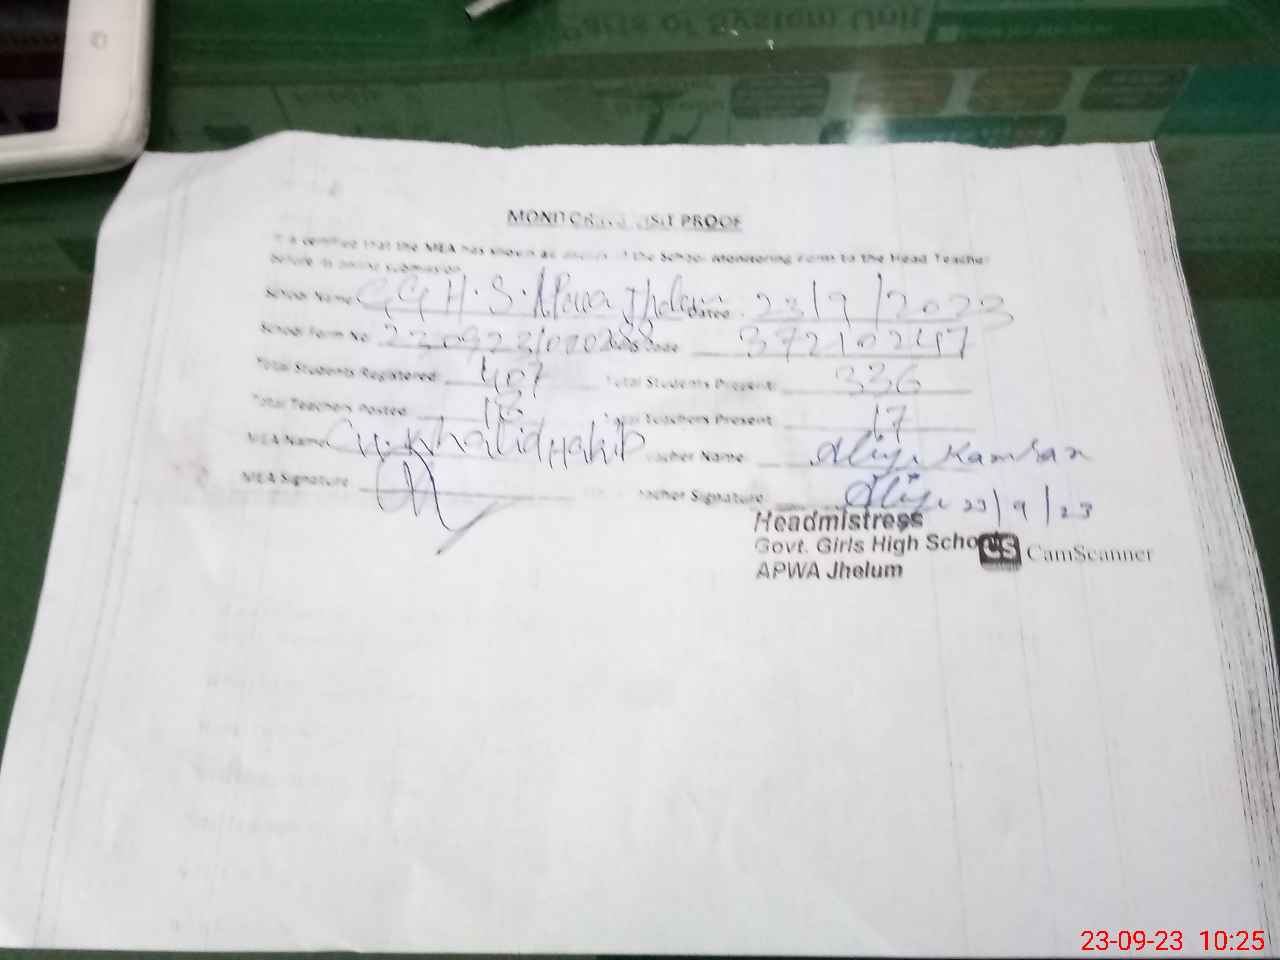 Parts of System Unit
MONITORING VISIT PROOF
It is certified that the MEA has shown all of the School Monitoring Form to the Head Teacher
before its online submission
School Name G G H.S. APWA Jhelum dated 23/9/2023
School Form No. 230923/000288 Code 37210247
Total Students Registered 407 Total Students Present: 336
Total Teachers Posted 18 Total Teachers Present 17
MEA Name Ch. Khalid Habib Teacher Name: Aliya Kamran
MEA Signature Teacher Signature Aliya 23/9/23
Headmistress
Govt. Girls High School
APWA Jhelum
CS CamScanner
23-09-23 10:25